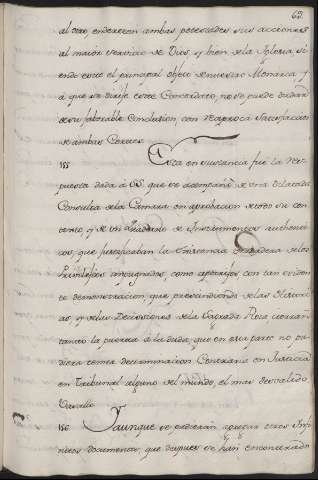 63.
al otro enderecen ambas potestades sus acciones
al maior servicio de Dios, y bien de la Iglesia si-
endo este el principal objeto de nuestro Monarca y
á que se dirije este Concordato, no se puede dudar
de su favorable Conclusion, con reciproca satisfaccion
de ambas Cortes.
155 Esta en sustancia fué la res-
puesta dada á que se acompañó de una dilatada
Consulta de la Camara con aprobacion de todo su con-
texto, y de un de Instrumentos autenti-
cos, que justificaban la existencia verdadera de los
Privilegios impugnados, como apoyados con tan eviden-
te demonstracion, que prescindiendo de las Histori-
as, y de las Decisiones de la Sagrada Rota cerraron
tanto la puerta á la duda, que en esta parte no pu-
diera temer determinacion Contraria en Justicia
en Tribunal alguno del mundo, el mas desvalido
Vasallo.
156 Y aunque se pudieran apuntar otros infi-
nitos documentos, que despues se han encontrado